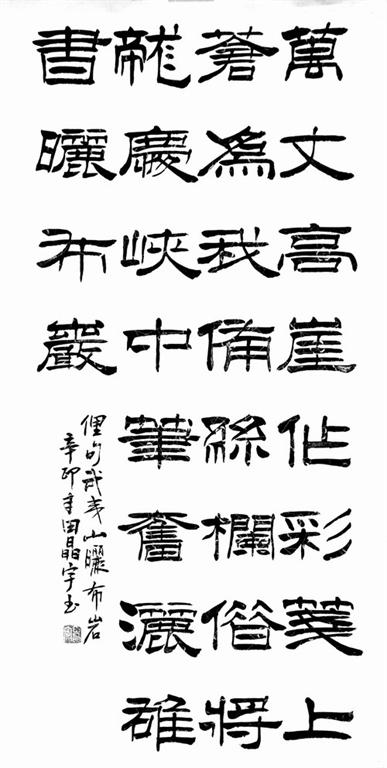 萬丈高崖作彩箋上
蒼為我備絲欄借將
龍慶峽中筆奮灑雄
書曬布巖
俚句武夷山曬布岩
辛卯年田晶宇书